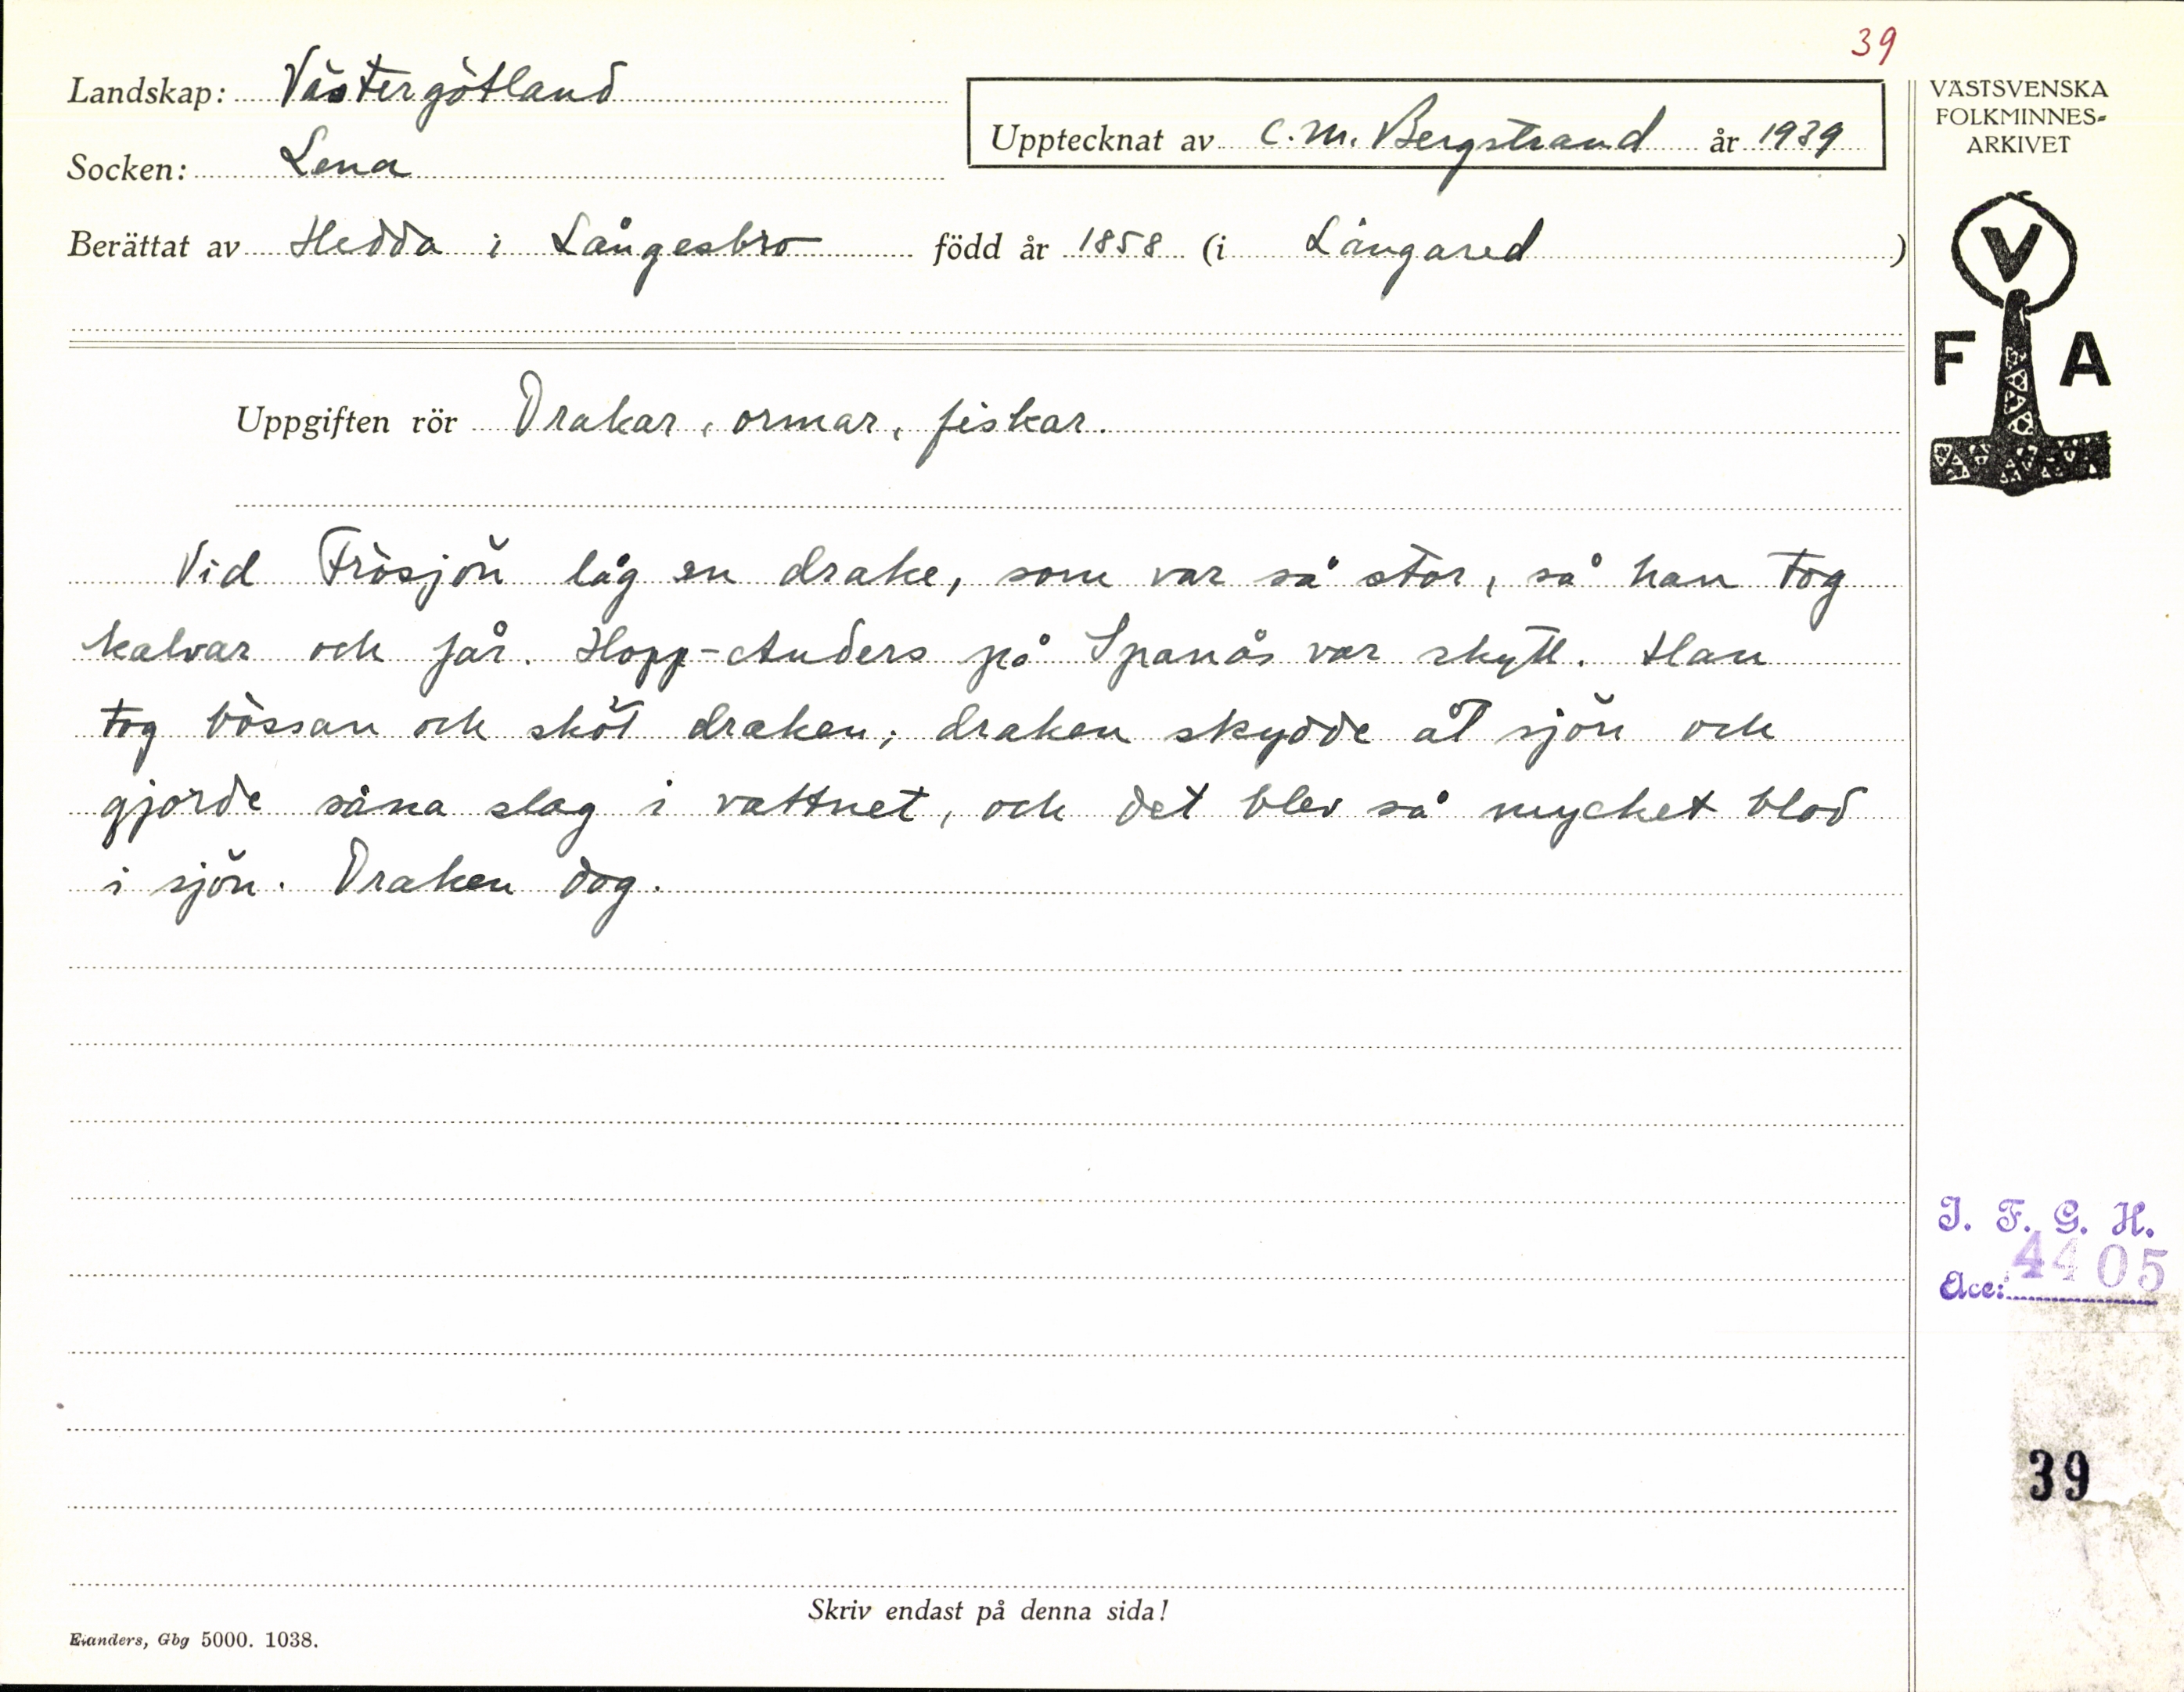 39
Landskap: Västergötland
Socken: Lena
Upptecknat av C. M. Bergstrand år 1939
Berättat av Hedda i Långesbro född år 1858 (i Långared)
Uppgiften rör Drakar, ormar, fiskar.
Vid Frösjön låg en drake, som var så stor, så han tog
kalvar och får. Hopp-Anders på Spanås var skytt. Han
tog bössan och sköt draken; draken skydde åt sjön och
gjorde såna slag i vattnet, och det blev så mycket blod
i sjön. Draken dog.
Skriv endast på denna sida!
Evanders, Gbg 5000. 1038.
VÄSTSVENSKA
FOLKMINNES-
ARKIVET
V
F A
I. F. G. H.
Acc: 4405
39